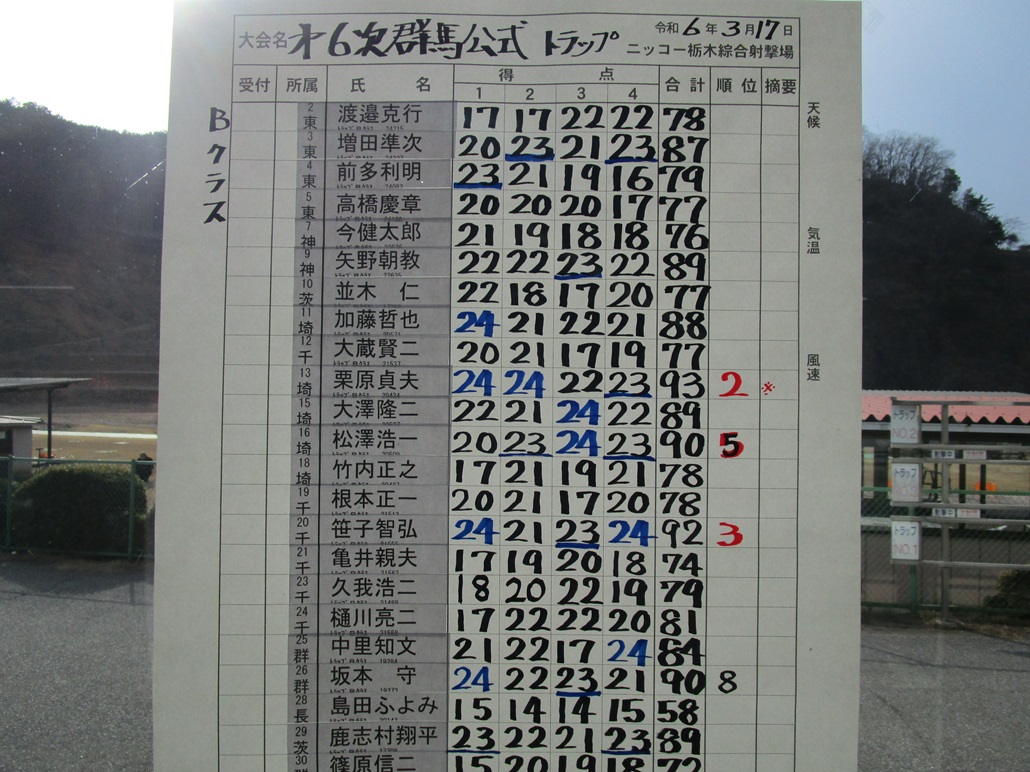 大会名 第6次群馬公式 トラップ
令和6年3月17日
ニッコー栃木綜合射撃場
受付 所属 氏名 得点 合計 順位 摘要
1 2 3 4
Bクラス
2 東 渡邉克行 17 17 22 22 78
3 東 増田準次 20 23 21 23 87
4 東 前多利明 23 21 19 16 79
5 東 高橋慶章 20 20 20 17 77
7 神 今健太郎 21 19 18 18 76
9 神 矢野朝教 22 22 23 22 89
10 茨 並木 仁 22 18 17 20 77
11 埼 加藤哲也 24 21 22 21 88
12 千 大蔵賢二 20 21 17 19 77
13 埼 栗原貞夫 24 24 22 23 93 2 ※
15 埼 大澤隆二 22 21 24 22 89
16 埼 松澤浩一 20 23 24 23 90 5
18 埼 竹内正之 17 21 19 21 78
19 千 根本正一 20 21 17 20 78
20 千 笹子智弘 24 21 23 24 92 3
21 千 亀井親夫 17 19 20 18 74
23 千 久我浩二 18 20 22 19 79
24 千 樋川亮二 17 22 22 20 81
25 群 中里知文 21 22 17 24 84
26 群 坂本 守 24 22 23 21 90 8
28 長 島田ふよみ 15 14 14 15 58
29 茨 鹿志村翔平 23 22 21 23 89
30 篠原信二 15 20 19 18 72
天候
気温
風速
トラップ
NO.2
トラップ
トラップ
NO.1